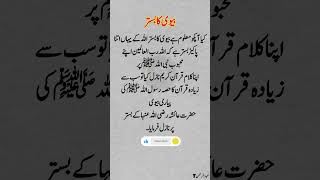 بیوی کا بستر
کیا آپکو معلوم ہے بیوی کا بستر اللہ کے یہاں اتنا
پاکیز بستر ہے کہ اللہ رب العالمین اپنے
محبوب نبی اللہ ﷺ پر
اپنا کلام قرآن کریم نازل کیا تو سب سے
زیادہ قرآن کا حصہ رسول اللہ ﷺ کی
پیاری بیوی
حضرت عائشہ رضی اللہ عنہا کے بستر
پر نازل فرمایا۔